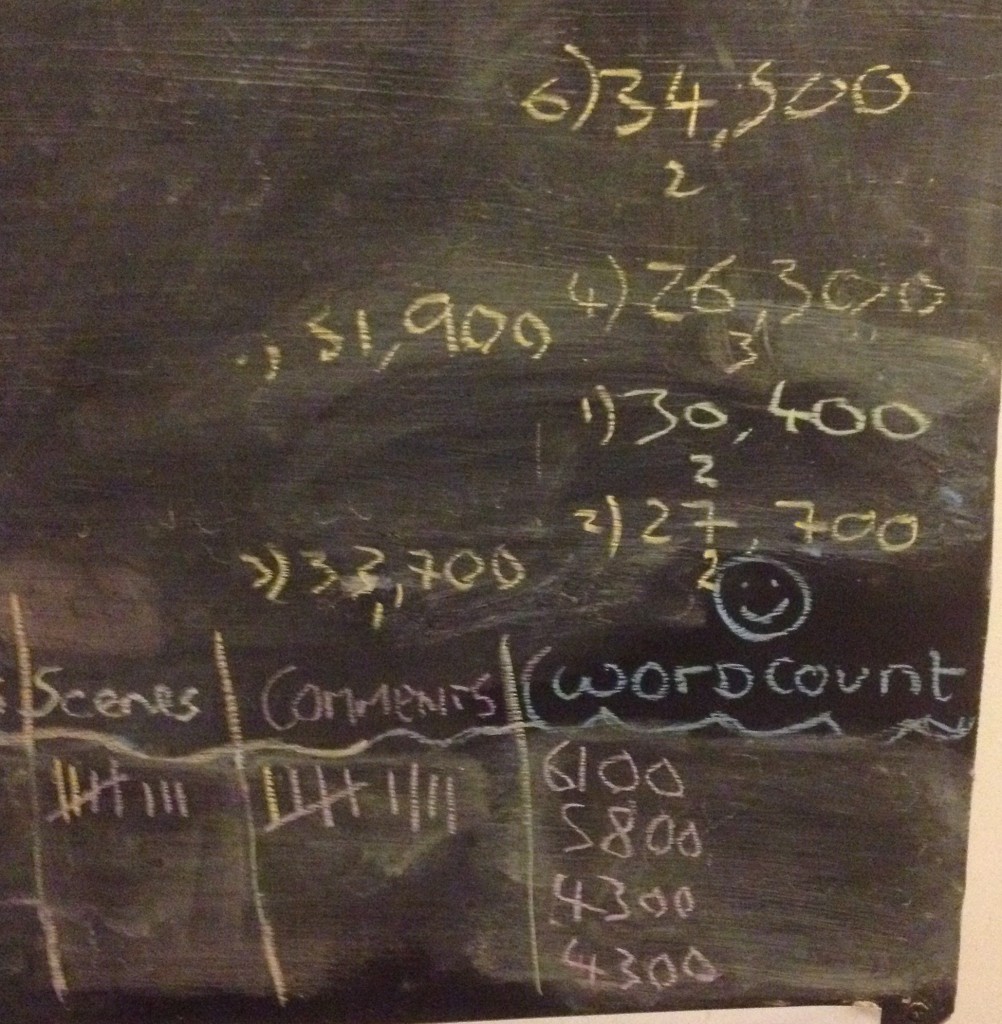 6) 34,500
2
4) 26,300
3
51,900
1) 30,400
2
2) 27,700
2
3) 33,700
1
Scenes Comments Wordcount
6100
5800
4300
4300